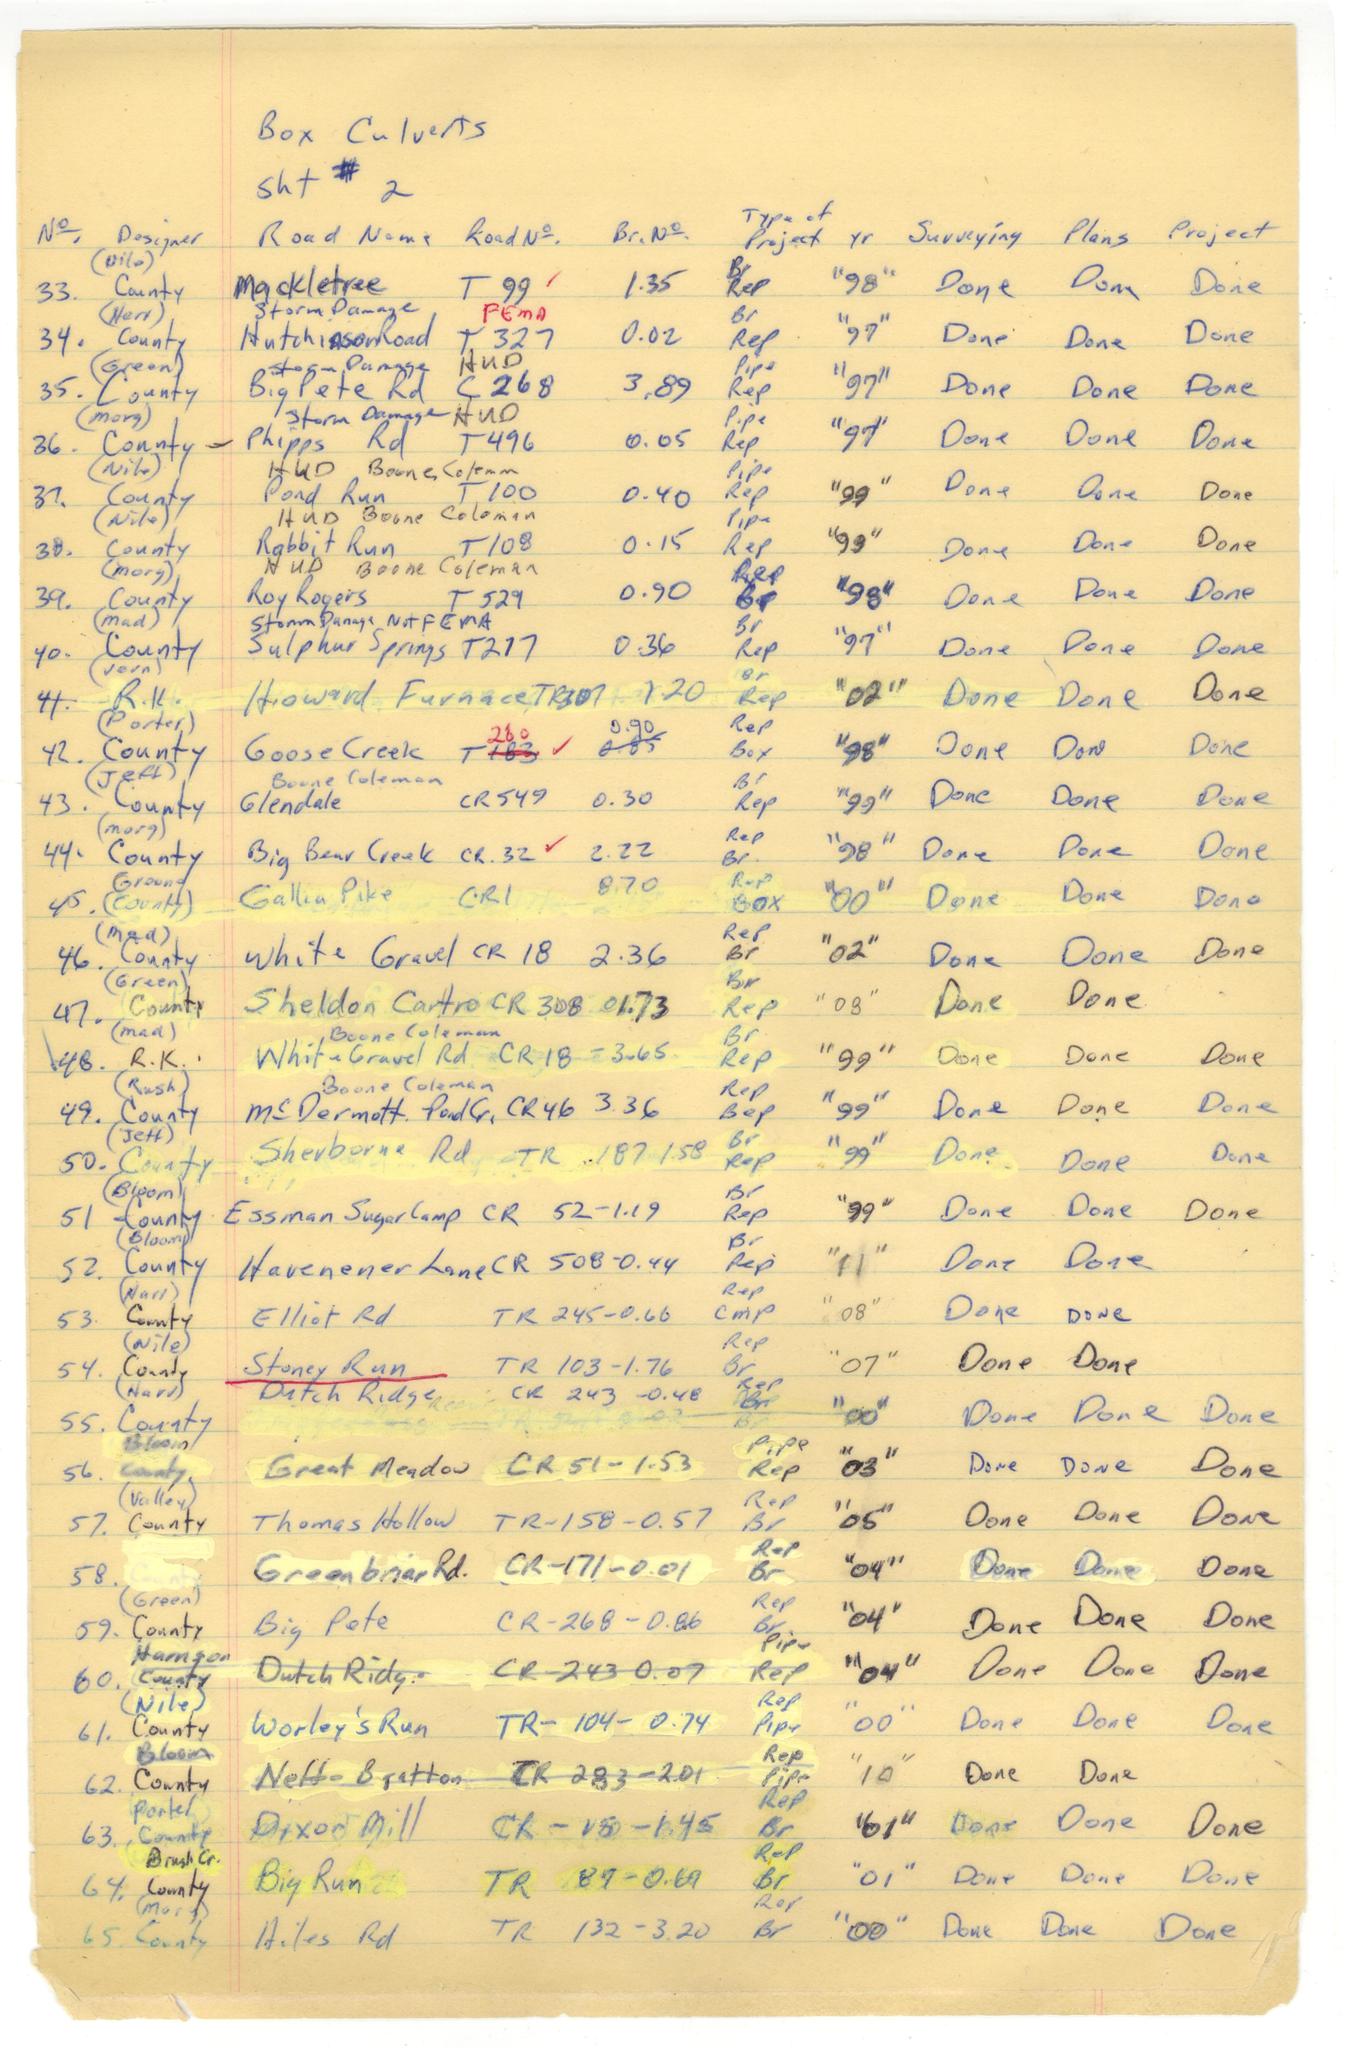 Box Culverts
Sht # 2
No. Designer Road Name Road No. Br. No. Type of Project yr Surveying Plans Project
(Nile)
33. County Mackletree T 99 ✓ 1.35 Br Rep "98" Done Done Done
(Harr) Storm Damage FEMA
34. County Hutchinson Road T 327 0.02 Br Rep "97" Done Done Done
(Green) Storm Damage HUD
35. County Big Pete Rd C 268 3.89 Pipe Rep "97" Done Done Done
(morg) Storm Damage HUD
36. County - Phipps Rd T 496 0.05 Pipe Rep "97" Done Done Done
(Nile) HUD Boone Coleman
37. County Pond Run T 100 0.40 Pipe Rep "99" Done Done Done
(Nile) HUD Boone Coleman
38. County Rabbit Run T 108 0.15 Pipe Rep "99" Done Done Done
(morg) HUD Boone Coleman
39. County Roy Rogers T 529 0.90 Rep Br "98" Done Done Done
(mad) Storm Damage Not FEMA
40. County Sulphur Springs T 277 0.36 Br Rep "97" Done Done Done
(Vern)
41. R.K. Howard Furnace TR 307 1.20 Br Rep "02" Done Done Done
(Porter) 260 0.90
42. County Goose Creek T 183 ✓ 0.85 Rep Box "98" Done Done Done
(Jeff) Boone Coleman
43. County Glendale CR 549 0.30 Br Rep "99" Done Done Done
(morg)
44. County Big Bear Creek CR. 32 ✓ 2.22 Rep Br. "98" Done Done Done
Ground
45. (County) Gallia Pike CR 1 8.70 Rep Box "00" Done Done Done
(mad)
46. County White Gravel CR 18 2.36 Rep Br "02" Done Done Done
(Green)
47. County Sheldon Cartro CR 308 01.73 Br Rep "08" Done Done
(mad) Boone Coleman
48. R.K. White Gravel Rd CR 18 - 3.65 Br Rep "99" Done Done Done
(Rush) Boone Coleman
49. County McDermott Pond Cr. CR 46 3.36 Rep "99" Done Done Done
(Jeff)
50. County Sherborne Rd TR 187 1.58 Br Rep "99" Done Done Done
(Bloom)
51 - County Essman Sugar Camp CR 52-1.19 Br Rep "99" Done Done Done
(Bloom)
52. County Havenener Lane CR 508-0.44 Br Rep "11" Done Done
(Harr)
53. County Elliot Rd TR 245-0.66 Rep Cmp "08" Done Done
(Nile)
54. County Stoney Run TR 103-1.76 Rep Br "07" Done Done
(Harr) Dutch Ridge CR 243 -0.48 Rep
55. County Br "00" Done Done Done
Bloom
56. County Great Meadow CR 51-1.53 Pipe Rep "03" Done Done Done
(Valley)
57. County Thomas Hollow TR-158-0.57 Rep Br "05" Done Done Done
58. County Greenbriar Rd. CR-171-0.01 Rep Br "04" Done Done Done
(Green)
59. County Big Pete CR-268-0.86 Rep Br "04" Done Done Done
Harrison
60. County Dutch Ridge CR-243-0.07 Pipe Rep "04" Done Done Done
(Nile)
61. County Worley's Run TR-104-0.74 Rep Pipe "00" Done Done Done
Bloom
62. County Neff-Bratton CR 283-2.01 Rep Pipe "10" Done Done
Porter
63. County Dixon Mill CR-15-1.45 Rep Br "01" Done Done Done
Brush Cr.
64. County Big Run TR 87-0.69 Rep Br "01" Done Done Done
(Morg)
65. County Hiles Rd TR 132-3.20 Rep Br "00" Done Done Done